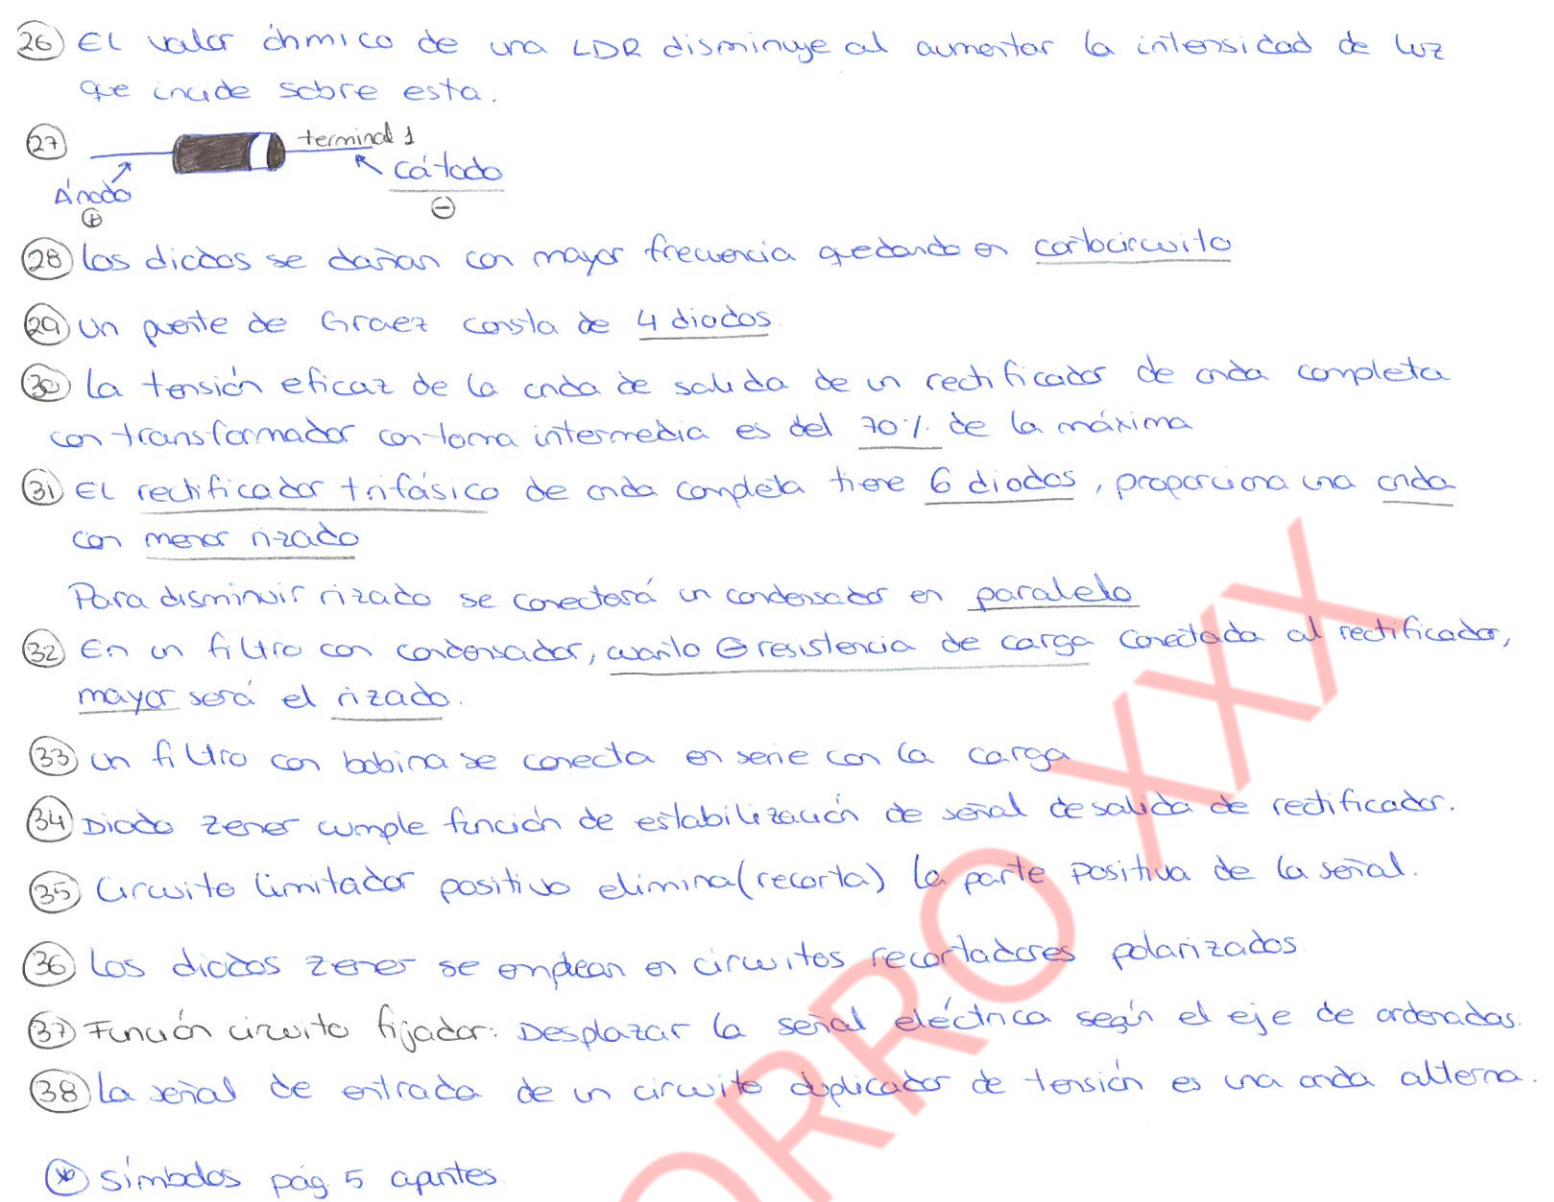 26 El valor óhmico de una LDR disminuye al aumentar la intensidad de luz
que incide sobre esta.
27 terminal 1
Cátodo
Ánodo
+
-
28 Los diodos se dañan con mayor frecuencia quedando en cortocircuito
29 Un puente de Graez consta de 4 diodos
30 La tensión eficaz de la onda de salida de un rectificador de onda completa
con transformador con toma intermedia es del 70% de la máxima
31 El rectificador trifásico de onda completa tiene 6 diodos, proporciona una onda
con menor rizado
Para disminuir rizado se conectará un condensador en paralelo
32 En un filtro con condensador, cuanto ⊖ resistencia de carga conectada al rectificador,
mayor será el rizado.
33 Un filtro con bobina se conecta en serie con la carga
34 Diodo zener cumple función de estabilización de señal de salida de rectificador.
35 Circuito limitador positivo elimina (recorta) la parte positiva de la señal.
36 Los diodos zener se emplean en circuitos recortadores polarizados
37 Función circuito fijador: Desplazar la señal eléctrica según el eje de ordenadas.
38 La señal de entrada de un circuito duplicador de tensión es una onda alterna.
* símbolos pág. 5 apuntes
ORRO XXX